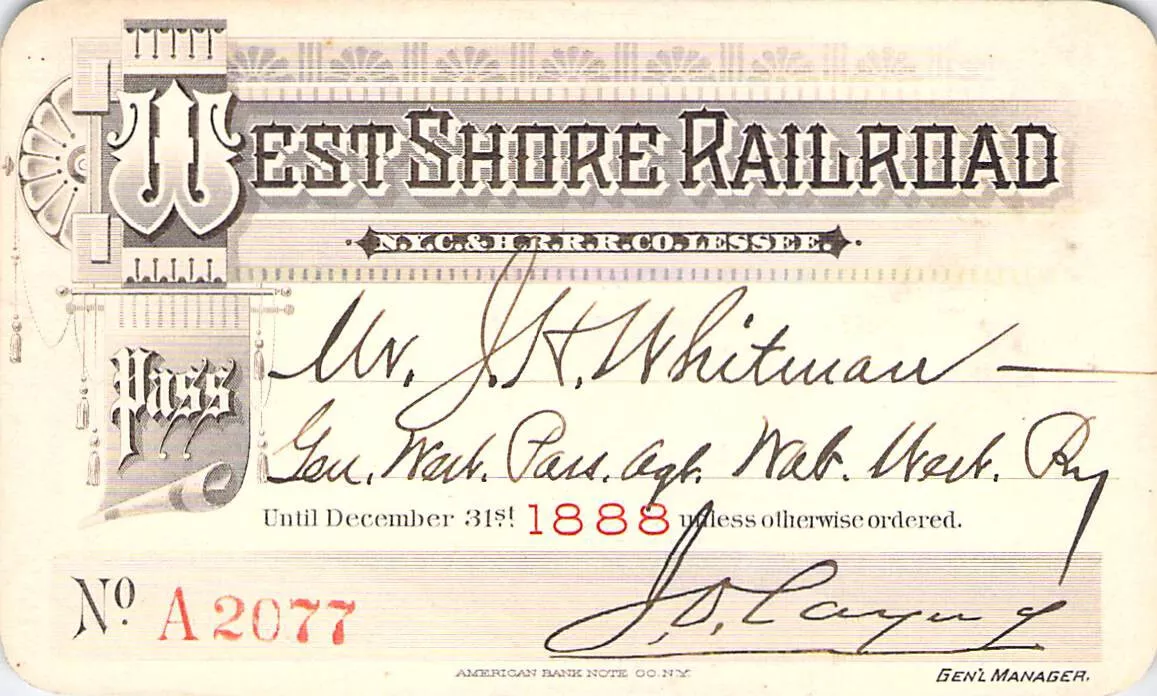 WEST SHORE RAILROAD
N.Y.C. & H.R.R.R. CO. LESSEE.
Pass
Mr. J. H. Whitman
Gen. West. Pass. Agt. Wab. West. Ry
Until December 31st 1888 unless otherwise ordered.
No. A2077
J. D. Layng
AMERICAN BANK NOTE CO. N.Y.
GEN'L MANAGER.